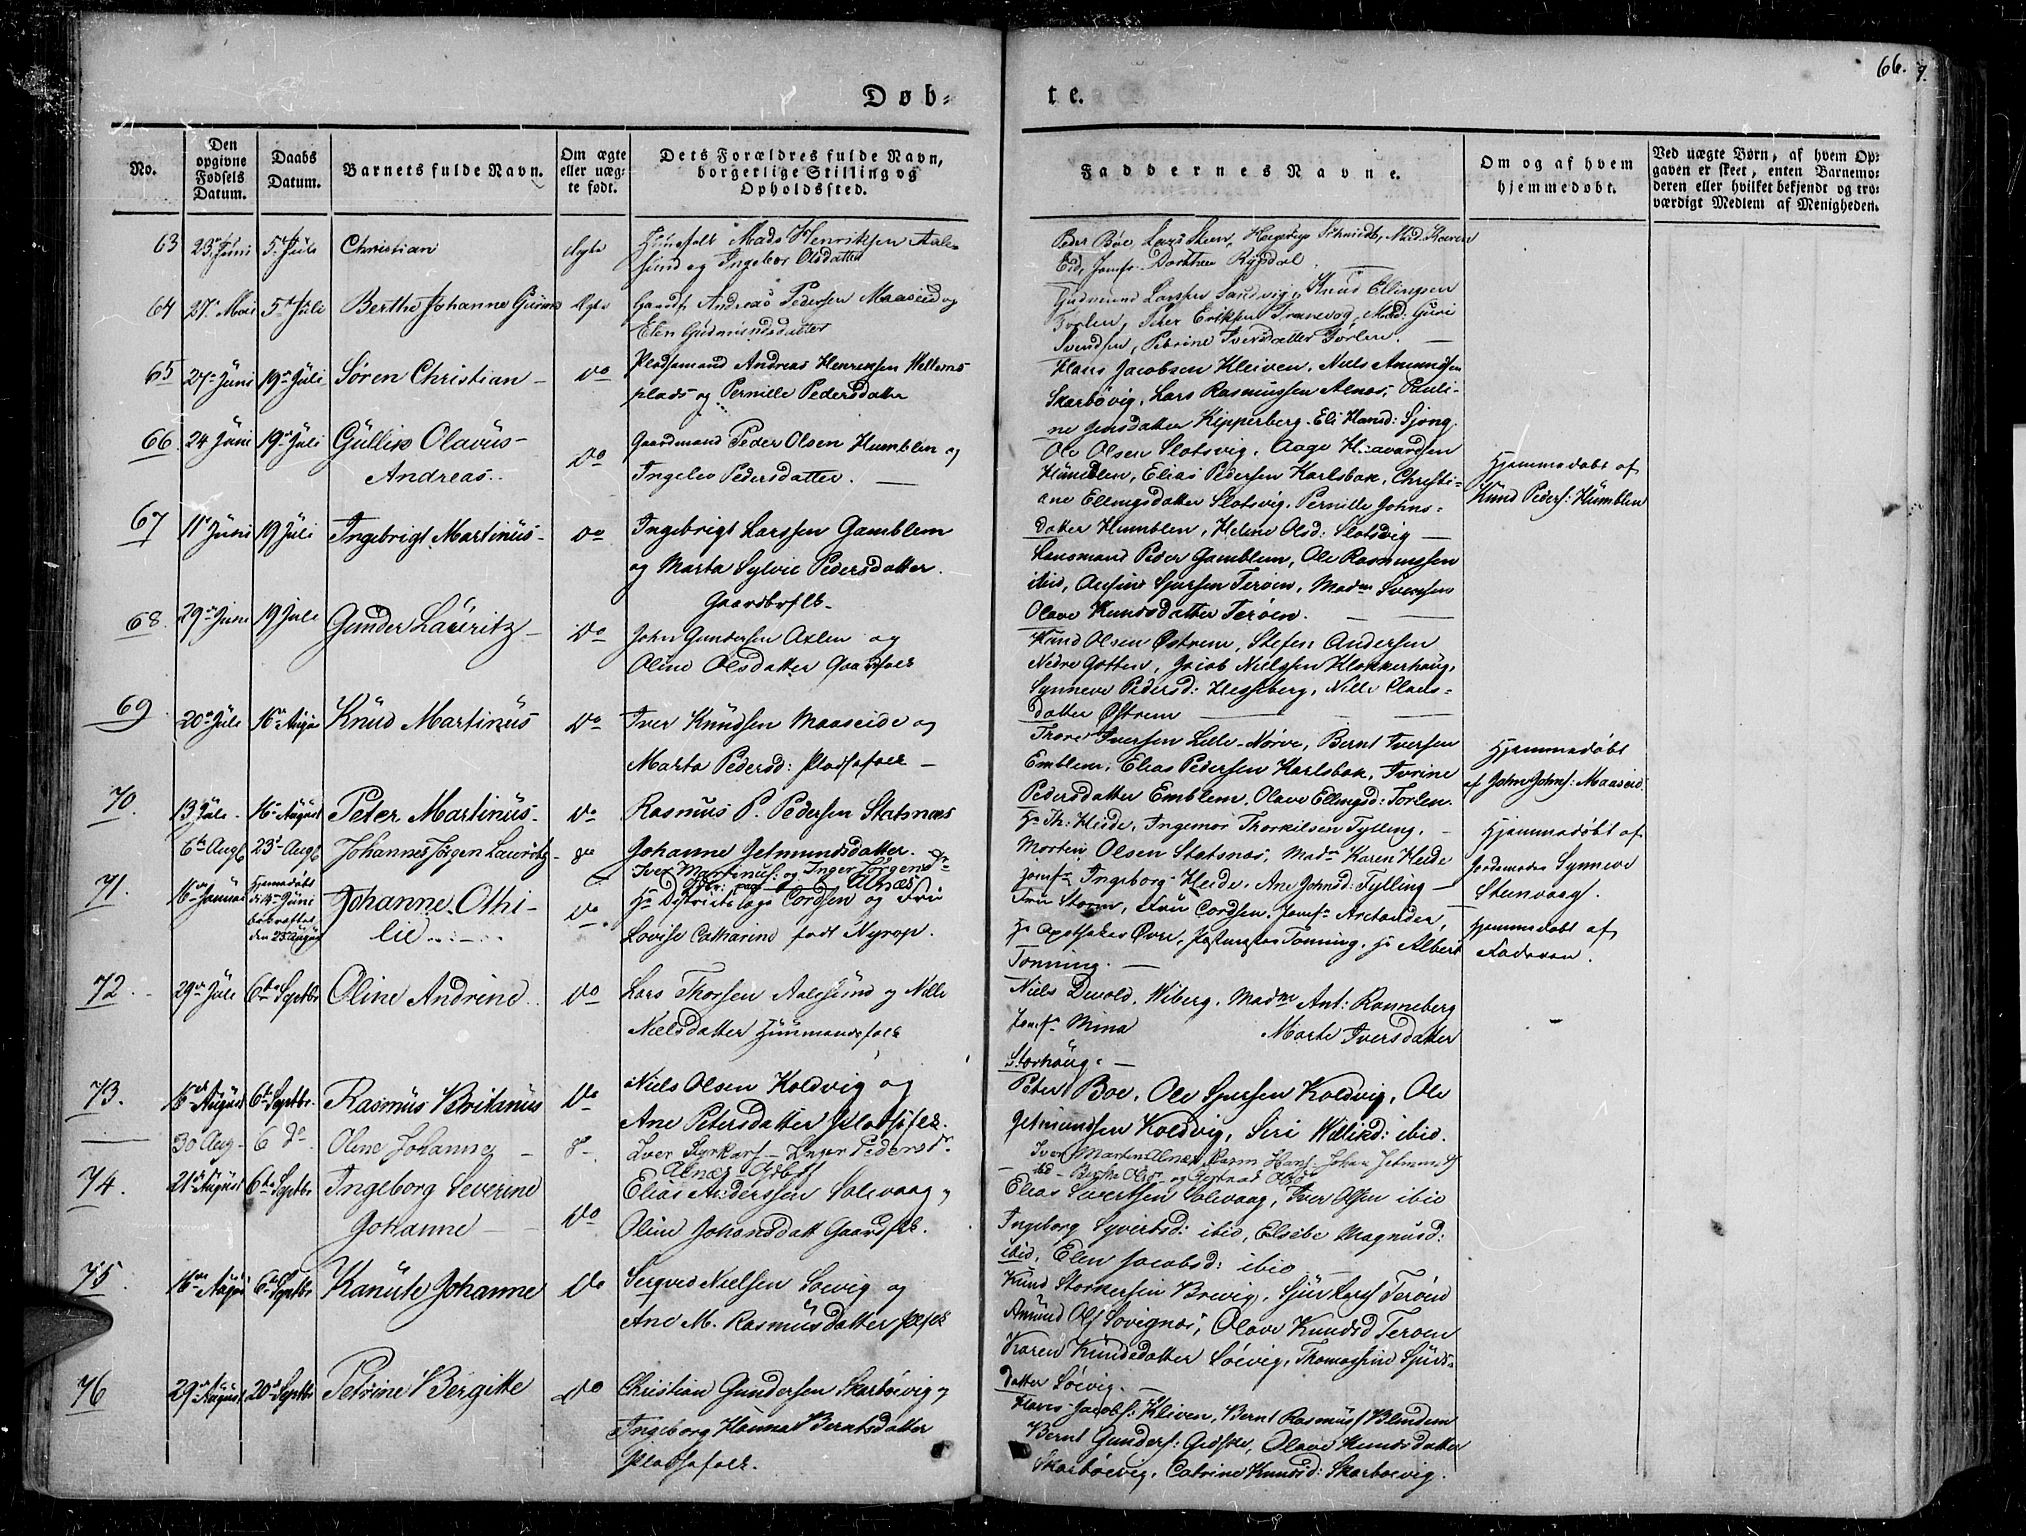 66.
Døb-
te.
No.
Den opgivne Fødsels Datum.
Daabs Datum.
Barnets fulde Navn.
Om ægte eller uægte født.
Dets Forældres fulde Navn, borgerlige Stilling og Opholdssted.
Faddernes Navne.
Om og af hvem hjemmedøbt.
Ved uægte Børn, af hvem Op-
gaven er skeet, enten Barnemo-
deren eller hvilket bekjendt og tro-
værdigt Medlem af Menigheden.
63 23 Juni 5 Juli Christian Ægte Mads Henriksen Aale-
sund og Ingebor Olsdatter
Peder Boe, Lars Steen, Schmidt, Mad.
Eid, Jomfr Dorthea Rypdal
64 27 Mai 5 Juli Berthe Johanne Gurine Ægte Gaardf. Andreas Pedersen Maaseid og
Elen Gudmundsdatter
Gudmund Larssen Sandvig, Knud Ellingsen
Torlen, Peter Eriksen Tranvog, Mad: Guri
Svendsen, Petrine Iversdatter Torlen. —
65 27 Juni 19 Juli Søren Christian — do Pladsmand Andreas Henriksen Wollerns
plads og Pernille Pedersdatter
Hans Jacobsen Kleiven, Niels Amundsen
Skarbøvig, Lars Rasmussen Alnæs, Pauli-
ne Jensdatter Kipperberg. Eli Hansd: Gjøng.
66 24 Juni 19 Juli Gullik Olavus-
Andreas. do Gaardmand Peder Olsen Humblen og
Ingelev Pedersdatter. —
Ole Olsen Slotsvig, Aage Haavardsen
Humblen, Elias Pedersen Karlsbak, Christi-
ane Ellingsdatter Slotsvig, Pernille Johns-
datter Humblen, Helene Olsd: Slotsvig —
Hjemmedøbt af
Knud Peders: Humblen
67 11 Juni 19 Juli Ingebrigt Martinus — do Ingebrigt Larssen Gamblem
og Marta Sylvie Pedersdatter.
Gaardbrflk.
Lensmand Peder Gamblem, Ole Rasmussen
ibid, Sjursen Terøen, Madm Svensen
Olave Knudsdatter Terøen. —
68. 29 Juni 19 Juli Gunder Lauritz — do John Gundersen Axlen og
Oline Olsdatter Gaardfolk
Knud Olsen Østrem, Stefen Andersen
Nedre Gotten, Jacob Nielssen Klokkerhaug,
Synneve Pedersd: Hesseberg, Nille Claus-
datter Østrem —
69 20 Juli 16 Augus Knud Martinus do Iver Knudsen Maaseide og
Marta Pedersd: Pladsfolk —
Thore Iversen Lille-Nørve, Bernt Iversen
Emblem, Elias Pedersen Karlsbak, Ivrine
Pedersdatter Emblem. Olave Ellingsd: Torlen.
Hjemmedøbt
af John Johns: Maaseid.
70. 13 Jule. 16 August Peter Martinus — do Rasmus P. Pedersen Slatsnæs
Johanne Jetmundsdatter.
Hr Th: Heide, Ingemor Thorkilsen Tylling,
Morten Olsen Slatsnæs, Madm Karen Heide
Jomfr Ingeborg Heide, Ane Johnsd: Tylling —
Hjemmedøbt af
Jordemoder Synneve
Steenvaag.
6te Aug 23 Aug Johannes Jørgen Lauritz — Iver Martinus: og Inger Jørgensdr
Alnæs
71. 16 Januar Hjemmedøbt
d: 14 Juni
bekræftet
den 23 August Johanne Othi-
lie do Hr Districtslæge Cordsen og Fru
Lovise Catharine født Nyrop.
Fru Storm, Fru Cordsen, Jomfr Arctander,
Hr Apotheker Øvre, Tonning, Hr Albert
Tonning. —
Hjemmedøbt af
Faderen.
72. 29 Jule 6te Septbr Oline Andrine do Lars Thorsen Aalesund og Nille
Nielsdatter Huusmandsfolk
Niels Devold, Wiberg, Madm Ant: Rønneberg
Jomfr Mina Marte Iversdatter
Storhaug. —
73. 15 August 6te Septbr. Rasmus Britanus do Niels Olsen Koldvig og
Ane Petersdatter Pladsflk.
Peter Boe, Ole Sjursen Koldvig, Ole
Jetmundsen Koldvig, Siri Willikd: ibid.
30 Aug — 6 do Oline Johanne — Iver Styrkars — Inger Pedersdr
Alnæs
Iver Martin Alnæs Rasm Hans: Johan Jetmunds
ibd — Berthe Olsdr og Gertrud Olsd
74. 21 August 6te Septbr Ingeborg Severine
Johanne — do Elias Anderssen Solevaag og
Oline Johansdatt Gaardflk.
Elias Sivertsen Solevaag, Iver Olsen ibid
Ingeborg Syvertsd: ibid, Elsebe Magnusd:
ibid, Elen Jacobsd: ibid
75. 16 Augus 6te Septbr Kanute Johanne do Sergved Nielsen Soevig og
Ane M. Rasmusdatter plfolk
Knud Storkersen Brevig, Sjur Lars Terøen
Amund Ols Sovignæs, Olave Knudsd Terøen
Karen Knudsdatter Soevig, Thomassine Sjurs-
datter Soevig. —
76 29 August 20 Septbr Petrine Bergitte do Christian Gundersen Skarbøevig og
Ingeborg Hanna Berntsdatter
Pladsfolk.
Hans Jacobs: Kliven, Bernt Rasmus Blindem
Bernt Gunders: Gidske, Olave Knudsdatter
Skarbøevig, Catrine Knudsd: Skarboevig.